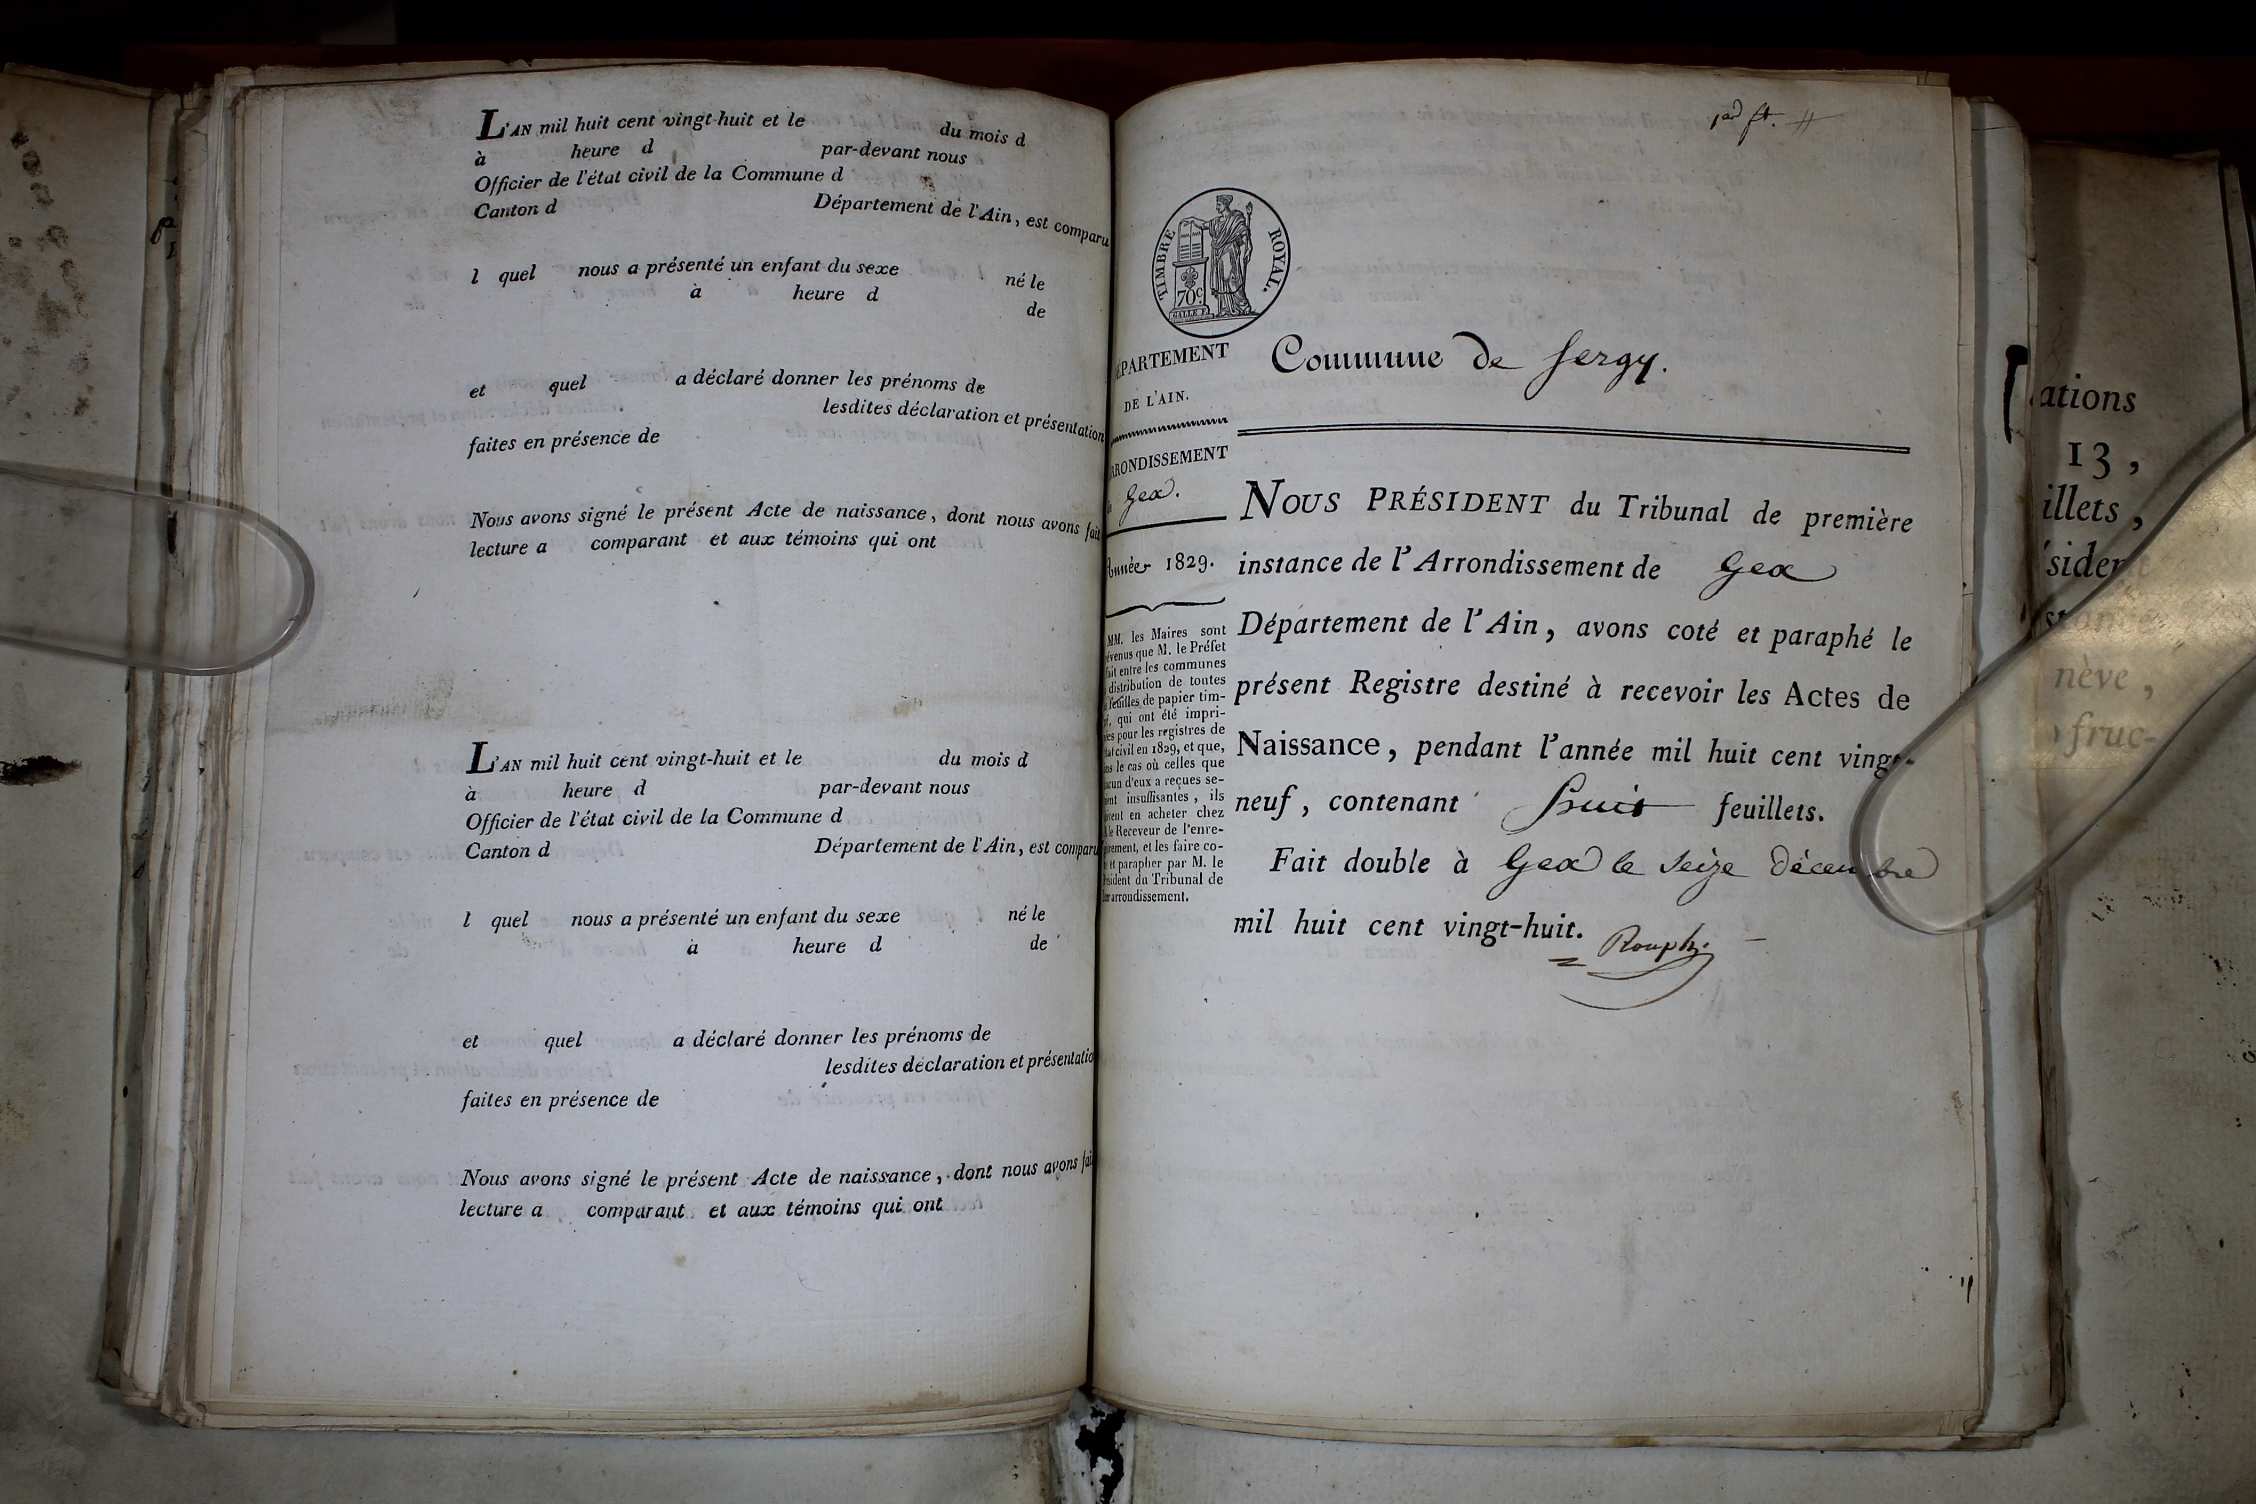 L'AN mil huit cent vingt-huit et le du mois d
à heure d par-devant nous
Officier de l'état civil de la Commune d
Canton d Département de l'Ain, est comparu
l quel nous a présenté un enfant du sexe né le
à heure d
de
et quel a déclaré donner les prénoms de
lesdites déclaration et présentation
faites en présence de
Nous avons signé le présent Acte de naissance, dont nous avons fait
lecture a comparant et aux témoins qui ont
L'AN mil huit cent vingt-huit et le du mois d
à heure d par-devant nous
Officier de l'état civil de la Commune d
Canton d Département de l'Ain, est comparu
l quel nous a présenté un enfant du sexe né le
à heure d de
et quel a déclaré donner les prénoms de
lesdites déclaration et présentatio
faites en présence de
Nous avons signé le présent Acte de naissance, dont nous avons fai
lecture a comparant et aux témoins qui ont
TIMBRE ROYAL.
70c.
GALLE F.
ÉPARTEMENT
DE L'AIN.
RRONDISSEMENT
Gex.
Année 1829.
MM. les Maires sont
évenus que M. le Préfet
fait entre les communes
distribution de toutes
feuilles de papier tim-
qui ont été impri-
ées pour les registres de
tat civil en 1829, et que,
ns le cas où celles que
acun d'eux a reçues se-
ient insuffisantes, ils
vient en acheter chez
le Receveur de l'enre-
gistrement, et les faire co-
et parapher par M. le
résident du Tribunal de
arrondissement.
Commune de Sergy.
NOUS PRÉSIDENT du Tribunal de première
instance de l'Arrondissement de Gex
Département de l'Ain, avons coté et paraphé le
présent Registre destiné à recevoir les Actes de
Naissance, pendant l'année mil huit cent vingt-
neuf, contenant huit feuillets.
Fait double à Gex le seize décembre
mil huit cent vingt-huit.
ations
13,
illets,
siden
nève,
fruc-